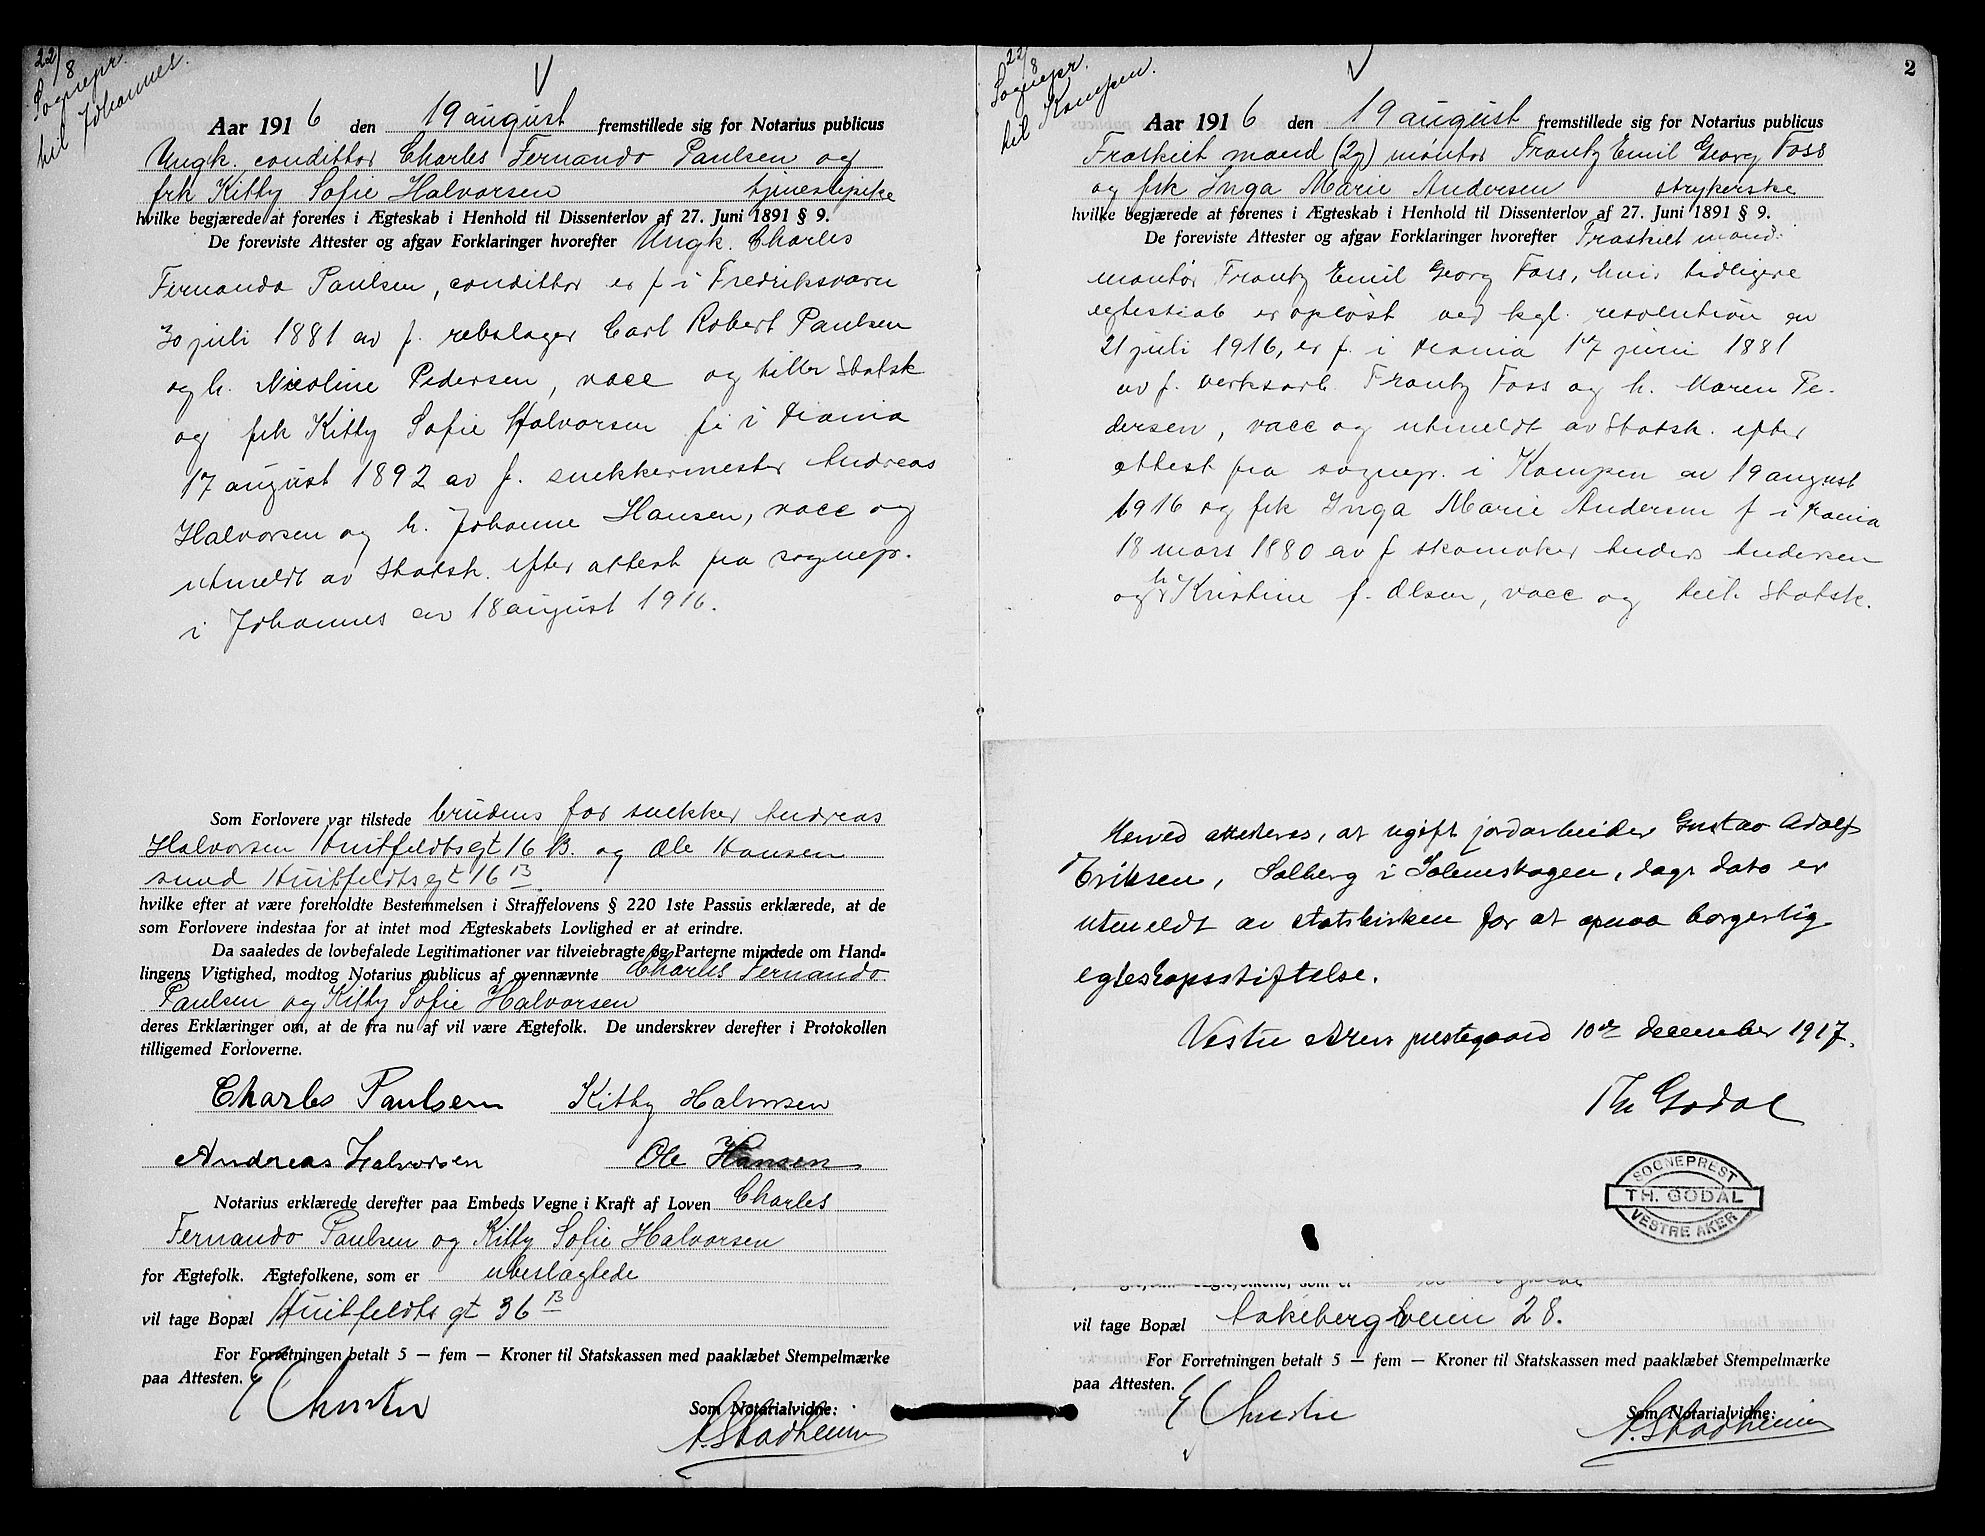 22/8
Sognepr.
til Johannes.
Aar 1916 den 19 august fremstillede sig for Notarius publicus
Ungk. condittor Charles Fernando Paulsen og
frk Kitty Sofie Halvorsen tjenestepike
hvilke begjærede at forenes i Ægteskab i Henhold til Dissenterlov af 27. Juni 1891 § 9.
De foreviste Attester og afgav Forklaringer hvorefter Ungk. Charles
Fernando Paulsen, condittor er f i Fredriksværn
30 juli 1881 av f. rebslager Carl Robert Paulsen
og h. Nicoline Pedersen, vacc og tilhr Statsk
og frk Kitty Sofie Halvorsen f. i Kr.ania
17 august 1892 av f. snekkermester Andreas
Halvorsen og h. Johanne Hansen, vacc og
utmeldt av Statsk. efter attest fra sognepr.
i Johannes av 18 august 1916.
Som Forlovere var tilstede brudens far snekker Andreas
Halvorsen Huitfeldtsgt 16 B. og Ole Hansen
smed Huitfeldtsgt 16 B
hvilke efter at være foreholdte Bestemmelsen i Straffelovens § 220 1ste Passus erklærede, at de
som Forlovere indestaa for at intet mod Ægteskabets Lovlighed er at erindre.
Da saaledes de lovbefalede Legitimationer var tilveiebragte og Parterne mindede om Hand-
lingens Vigtighed, modtog Notarius publicus af ovennævnte Charles Fernando
Paulsen og Kitty Sofie Halvorsen
deres Erklæringer om, at de fra nu af vil være Ægtefolk. De underskrev derefter i Protokollen
tilligemed Forloverne.
Charles Paulsen Kitty Halvorsen
Andreas Halvorsen Ole Hansen
Notarius erklærede derefter paa Embeds Vegne i Kraft af Loven Charles
Fernando Paulsen og Kitty Sofie Halvorsen
for Ægtefolk. Ægtefolkene, som er ubeslagtede
vil tage Bopæl Huitfeldts gt 36 B
For Forretningen betalt 5 — fem — Kroner til Statskassen med paaklæbet Stempelmærke
paa Attesten.
E Christie
Som Notarialvidne:
A. Stadheim
2
22/8
Sognepr.
til Kampen.
Aar 1916 den 19 august fremstillede sig for Notarius publicus
Fraskilt mand (2g) montør Frantz Emil Georg Foss
og frk Inga Marie Andersen strykerske
hvilke begjærede at forenes i Ægteskab i Henhold til Dissenterlov af 27. Juni 1891 § 9.
De foreviste Attester og afgav Forklaringer hvorefter Fraskilt mand
montør Frantz Emil Georg Foss, hvis tidligere
egteskab er opløst ved kgl. resolution av
21 juli 1916, er f. i Kr.ania 17 juni 1881
av f. verksarb. Frantz Foss og h. Maren Pe-
dersen, vacc og utmeldt av Statsk. efter
attest fra sognepr. i Kampen av 19 august
1916 og frk Inga Marie Andersen f i Kr.ania
18 mars 1880 av f skomaker Anders Andersen
og h Kristine f. Olsen, vacc og tilh. Statsk.
Herved attesteres, at ugift jordarbeider Gustav Adolf
Eriksen, Solberg i Solemskogen, dags dato er
utmeldt av statskirken for at opnaa borgerlig
egteskapsstiftelse.
Vestre Akers prestegaard 10de december 1917.
Th Godal
SOGNEPREST
TH. GODAL
VESTRE AKER
vil tage Bopæl Aakebergveien 28.
For Forretningen betalt 5 — fem — Kroner til Statskassen med paaklæbet Stempelmærke
paa Attesten.
E Christie
Som Notarialvidne:
A. Stadheim